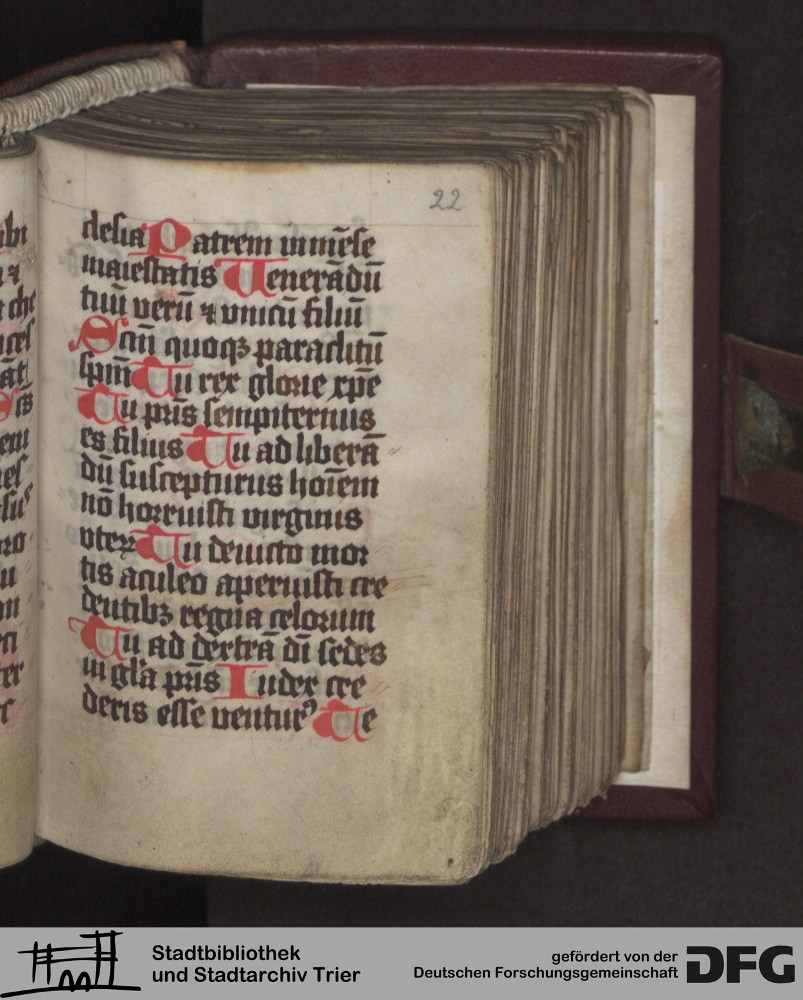 22
clesia Patrem inmēse
maiestatis Uenerādū
tuū verū ⁊ vnicū filiū
Scm̄ quoqꝫ paraclitū
spm̄ Tu rex glorie xp̄e
Tu pr̄is sempiternus
es filius Tu ad liberā
dū suscepturus hoīem
nō horruisti virginis
vterꝫ Tu deuicto mor
tis aculeo aperuisti cre
dentibꝫ regna celorum
Tu ad dextrā dī sedes
in gl̄a pr̄is Iudex cre
deris esse venturꝰ Te
Stadtbibliothek
und Stadtarchiv Trier
gefördert von der
Deutschen Forschungsgemeinschaft
DFG